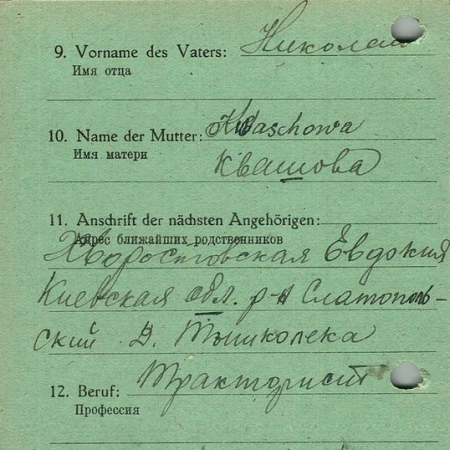 9. Vorname des Vaters: Николай
Имя отца
10. Name der Mutter: Kwaschowa
Имя матери Квашова
11. Anschrift der nächsten Angehörigen:
Адрес ближайших родственников
Хворостовская Евдокия
Киевская обл. р-н Златополь-
ский д. Тышколека
12. Beruf: Тракторист
Профессия